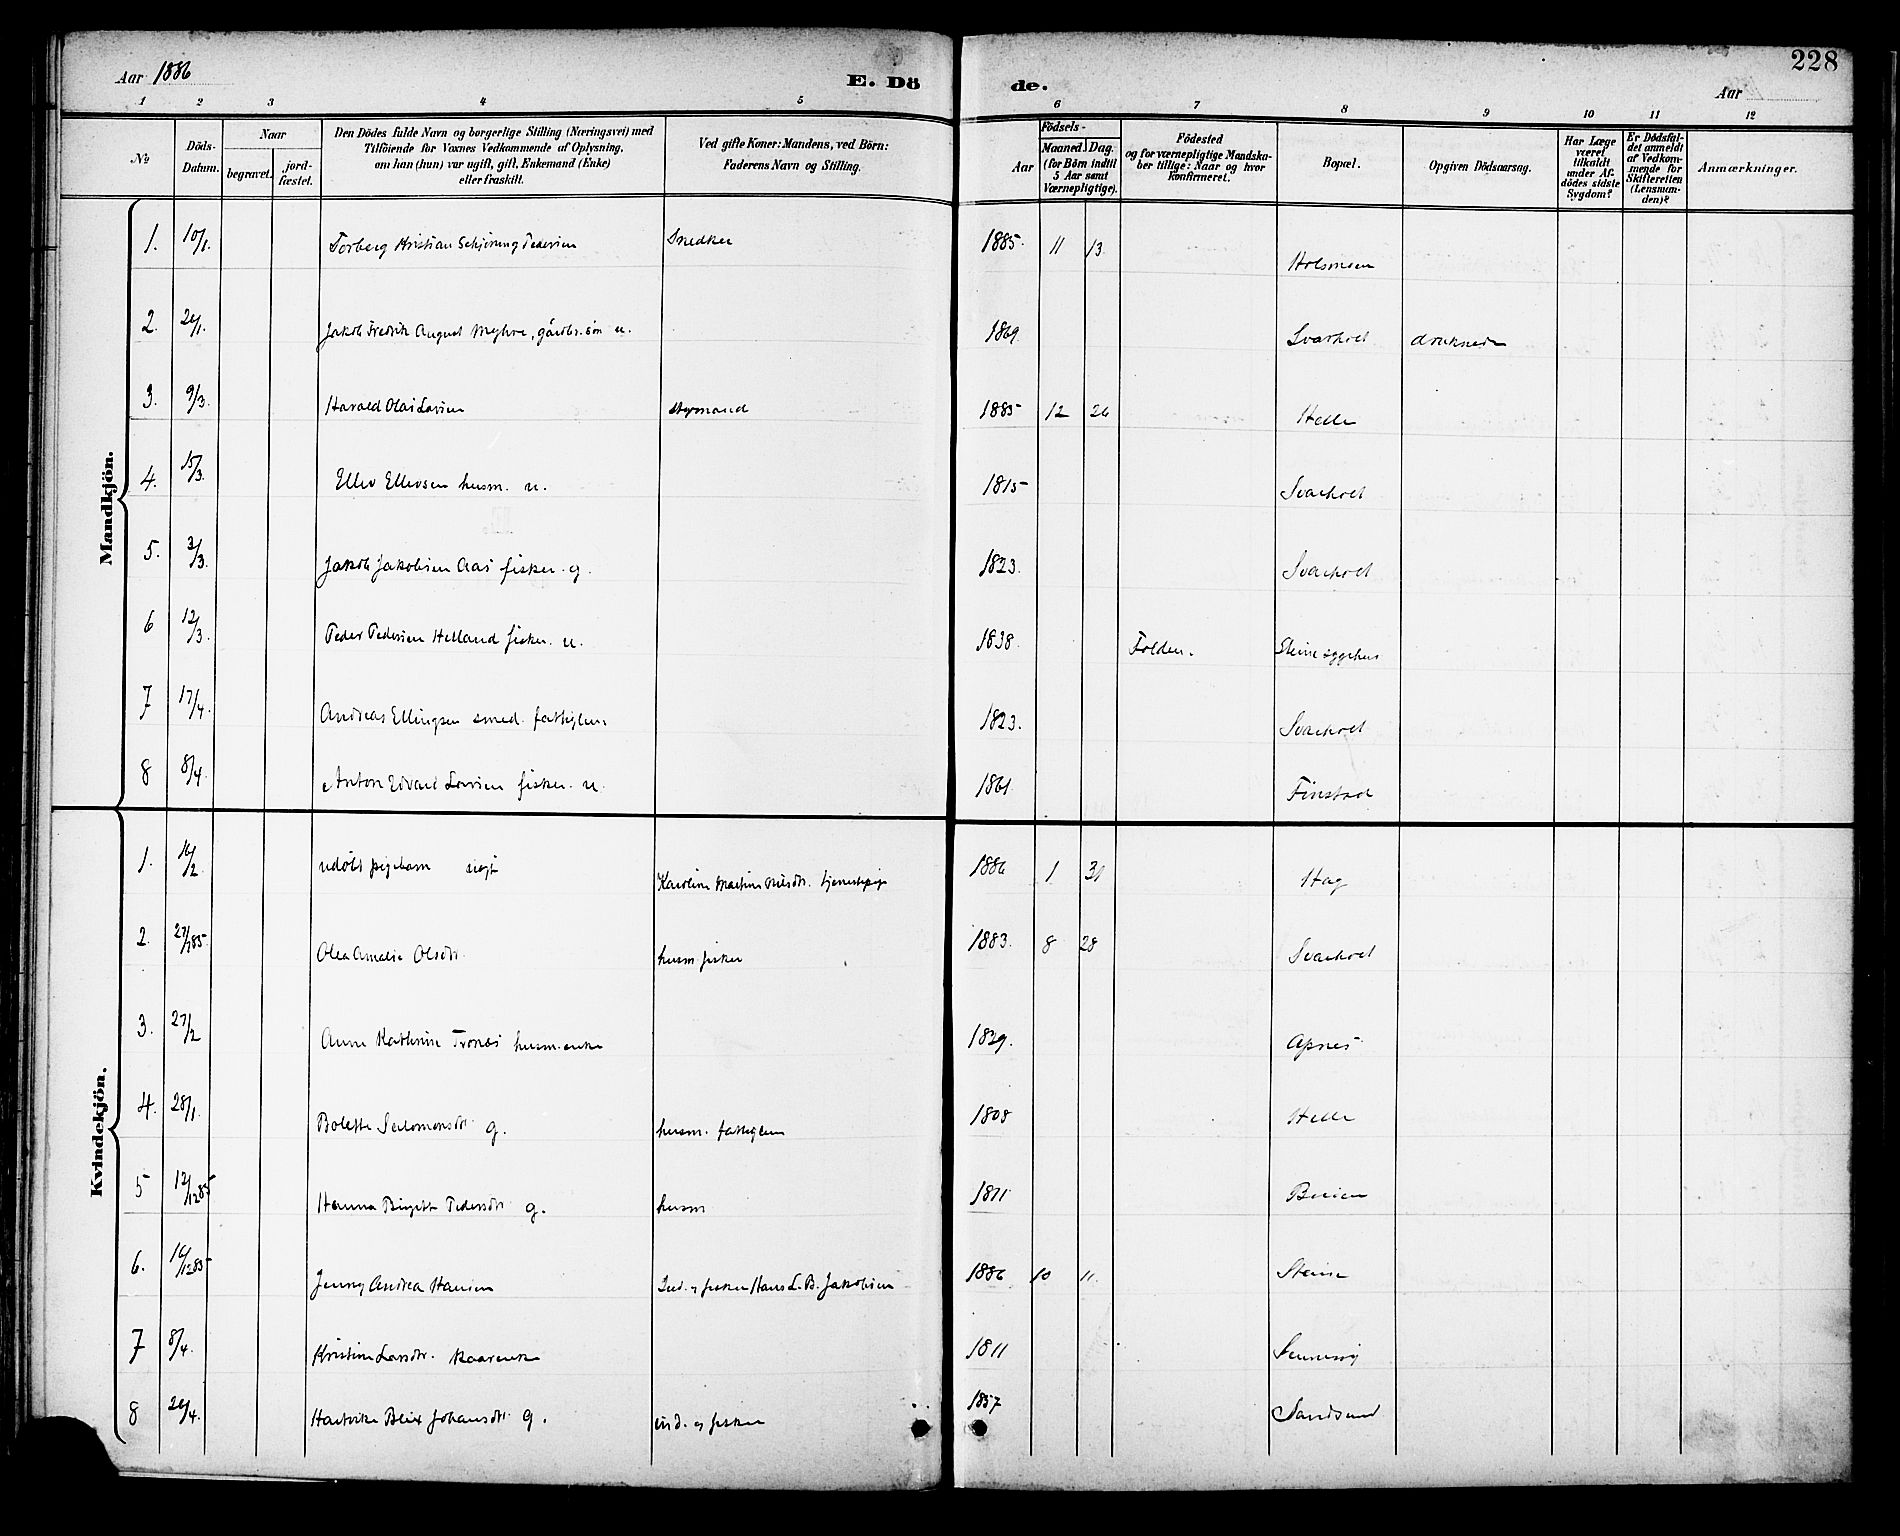 Aar 1886
E. Dö
de.
Aar
228
1 2 3 4 5 6 7 8 9 10 11 12
№
Döds-Datum.
Naar
begravet.
jord-fæstet.
Den Dödes fulde Navn og borgerlige Stilling (Næringsvei) med
Tilföiende for Voxnes Vedkommende af Oplysning,
om han (hun) var ugift, gift, Enkemand (Enke)
eller fraskilt.
Ved gifte Koner: Mandens, ved Börn:
Faderens Navn og Stilling.
Födsels-
Aar
Maaned. Dag.
(for Börn indtil
5 Aar samt
Værnepligtige).
Födested
og for værnepligtige Mandska-
ber tillige: Naar og hvor
konfirmeret.
Bopæl.
Opgiven Dödsaarsag.
Har Læge
været
tilkaldt
under Af-
dödes sidste
Sygdom?
Er Dödsfal-
det anmeldt
af Vedkom-
mende for
Skifteretten
(Lensman-
den)?
Anmærkninger.
Mandkjön.
1. 10/1. Torberg Kristian Schjöning Pedersen Snedker 1885. 11 13. Holsmoen
2. 26/1. Jakob Fredrik August Myhre, gårdbr. sön u. 1869. Svarholt druknede
3. 9/3. Harald Olai Larsen styrmand 1885 12 26 Helle
4. 15/3. Ellev Ellevsen husm. u. 1815 Svarholt
5. 3/3. Jakob Jakobsen Aas fisker. g. 1823. Svarholt
6 12/3. Peder Pedersen Helland fisker. u. 1838. Folden. Steine sygehus
7 17/4. Andreas Ellingsen smed. fattiglem 1823. Svarholt
8 8/4. Anton Edvard Larsen fisker. u. 1861. Finstad
Kvindekjön.
1. 16/2. udöbt pigebarn uegt Karoline Martine Nilsdtr. tjenestepige 1886 1 31 Hag
2. 27/7 85. Olea Amalie Olsdtr. husm. fisker 1883. 8 28 Svarholt
3. 27/2 Anne Kathrine Trones husm. enke 1829. Apnes
4. 28/1. Bolette Salomonsdtr. g. husm. fattiglem 1808 Helle
5 12/12 85 Hanna Birgitte Pedersdtr. g. husm 1811
6. 16/12 85 Jenny Andrea Hansen Ind. og fisker Hans L. B. Jakobsen 1886 10 11. Steine
7 8/4. Kristine Larsdtr. kaarenke 1811
8 26/4. Hartvike Blix Johansdtr. g. ind. og fisker 1857 Sandsund